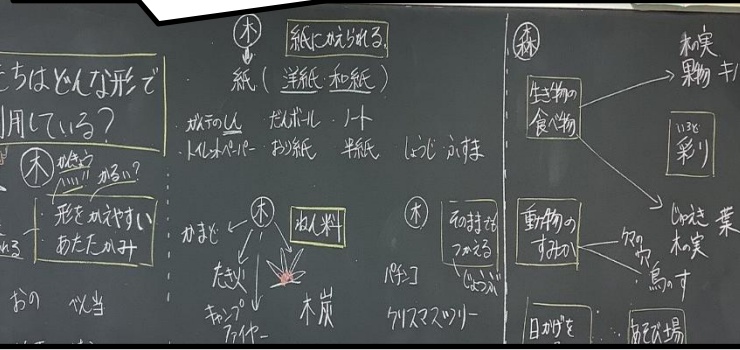 たちはどんな形で
用している?
木
かるい?
形をかえやすい
あたたかみ
おの べん当
木
紙にかえられる。
紙(洋紙・和紙)
ガムテのしん だんボール・ノート
トイレットペーパー おり紙 半紙 しょうじ・ふすま
木
ねん料
かまど
たき火
キャンプ
ファイヤー
木炭
木
そのままでも
つかえる
じょうぶ
パチンコ
クリスマスツリー
森
生き物の
食べ物
木の実
果物 キノ
いろど
彩り
じゅえき 葉
木の実
動物の
すみか
クマの
穴
鳥のす
日かげを
あそび場